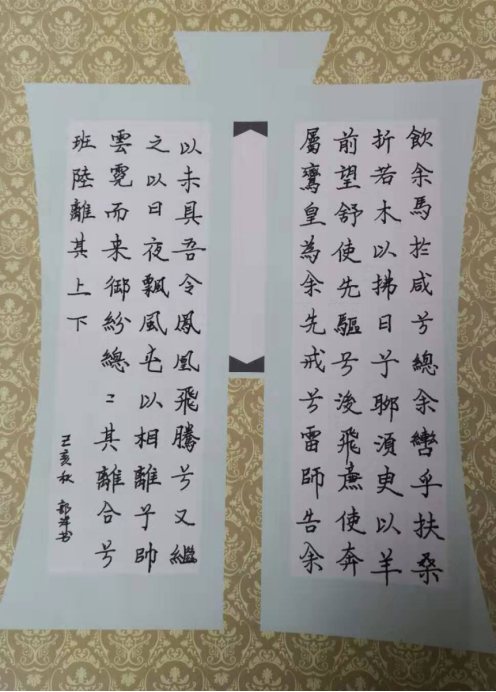 飲余馬於咸兮總余轡乎扶桑
折若木以拂日兮聊湏臾以羊
前望舒使先驅兮後飛廉使奔
屬鸞皇為余先戒兮雷師告余
以未具吾令鳳凰飛騰兮又繼
之以日夜飄風屯以相離兮帥
雲霓而来御紛總〻其離合兮
班陸離其上下
己亥秋